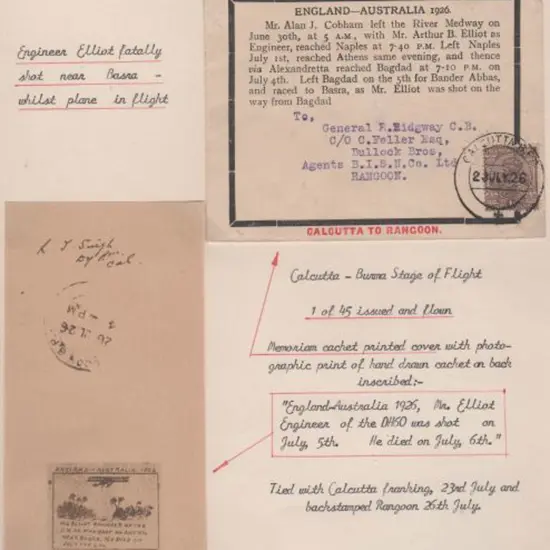 Engineer Elliot fatally
shot near Basra -
whilst plane in flight
ENGLAND—AUSTRALIA 1926.
Mr. Alan J. Cobham left the River Medway on
June 30th, at 5 A.M., with Mr. Arthur B. Elliot as
Engineer, reached Naples at 7-40 P.M. Left Naples
July 1st, reached Athens same evening, and thence
via Alexandretta reached Bagdad at 7-10 P.M. on
July 4th. Left Bagdad on the 5th for Bander Abbas,
and raced to Basra, as Mr. Elliot was shot on the
way from Bagdad
To,
General F.Ridgway C.B.
C/O C.Feller Esq,
Bullock Bros,
Agents B.I.S.N.Co. Ltd
RANGOON.
CALCUTTA
23 JUL 26
CALCUTTA TO RANGOON.
Calcutta - Burma Stage of Flight
1 of 45 issued and flown
Memoriam cachet printed cover with photo-
graphic print of hand drawn cachet on back
inscribed:-
"England-Australia 1926, Mr. Elliot
Engineer of the DH50 was shot on
July, 5th. He died on July, 6th."
Tied with Calcutta franking, 23rd July and
backstamped Rangoon 26th July.
ENGLAND-AUSTRALIA 1926.